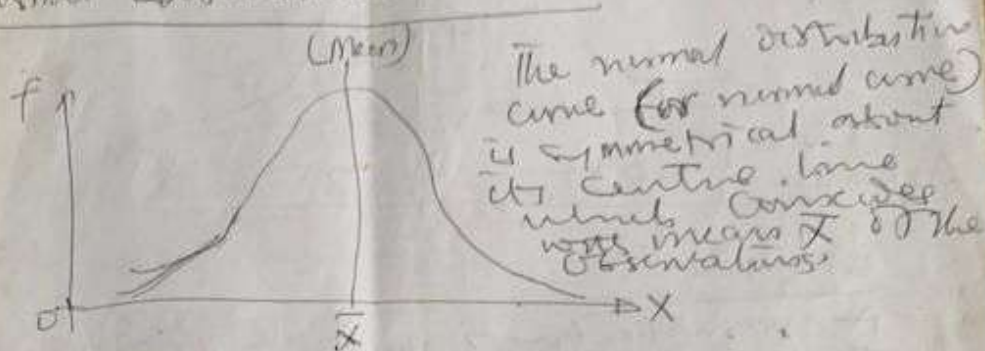 (Mean)
f
The normal distribution
curve (or normal curve)
is symmetrical about
its centre line
which coincides
with mean X̄ of the
observations.
O
X
X̄